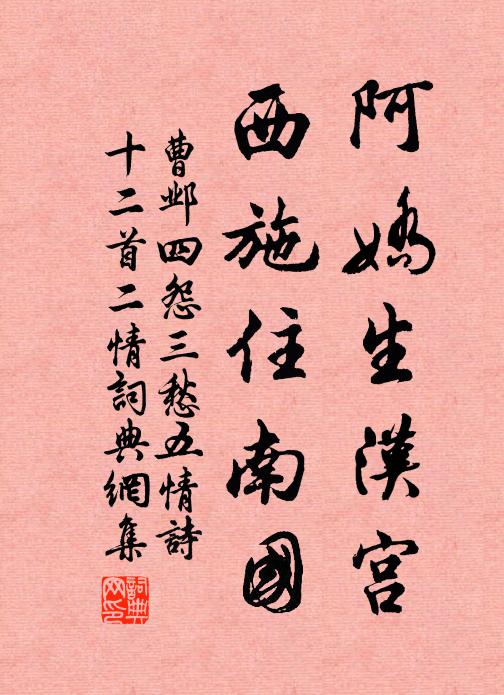 阿嬌生漢宮
西施住南國
曹鄴四怨三愁五情詩
十二首二情詞典網集
詞典網印